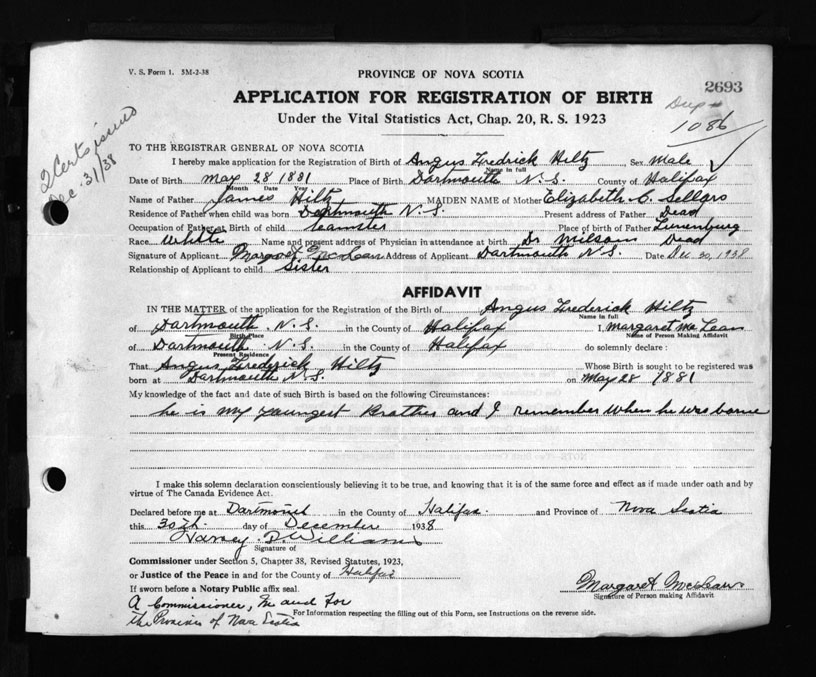 V. S. Form 1. 5M-2-38
PROVINCE OF NOVA SCOTIA
2693
APPLICATION FOR REGISTRATION OF BIRTH
Dup
1086
Under the Vital Statistics Act, Chap. 20, R. S. 1923
2 Certs issued
Dec. 31/38
TO THE REGISTRAR GENERAL OF NOVA SCOTIA
I hereby make application for the Registration of Birth of Angus Fredrick Hiltz Sex Male
Name in full
Date of Birth May 28 1881 Place of Birth Dartmouth N.S. County of Halifax
Month Date Year
Name of Father James Hiltz MAIDEN NAME of Mother Elizabeth C. Sellars
Residence of Father when child was born Dartmouth N.S. Present address of Father Dead
Occupation of Father at Birth of child teamster Place of birth of Father Lunenburg
Race White Name and present address of Physician in attendance at birth Dr Milsom Dead
Signature of Applicant Margaret McLean Address of Applicant Dartmouth N.S. Date Dec 30, 1938
Relationship of Applicant to child Sister
AFFIDAVIT
IN THE MATTER of the application for the Registration of the Birth of Angus Frederick Hiltz
Name in full
of Dartmouth N.S. in the County of Halifax I, Margaret McLean
Birth Place Name of Person Making Affidavit
of Dartmouth N.S. in the County of Halifax do solemnly declare:
Present Residence
That Angus Frederick Hiltz Whose Birth is sought to be registered was
born at Dartmouth N.S. on May 28 1881
My knowledge of the fact and date of such Birth is based on the following Circumstances:
he is my youngest Brother and I remember when he was borne
I make this solemn declaration conscientiously believing it to be true, and knowing that it is of the same force and effect as if made under oath and by
virtue of The Canada Evidence Act.
Declared before me at Dartmouth in the County of Halifax and Province of Nova Scotia
this 30th day of December 1938
Harvey D. Williams
Signature of
Commissioner under Section 5, Chapter 38, Revised Statutes, 1923,
or Justice of the Peace in and for the County of Halifax
If sworn before a Notary Public affix seal.
Margaret McLean
Signature of Person making Affidavit
A Commissioner, In and For
the Province of Nova Scotia
For Information respecting the filling out of this Form, see Instructions on the reverse side.